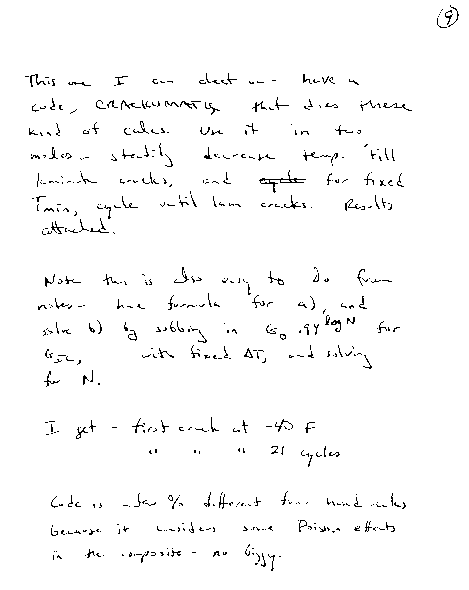 9
This one I can cheat on - have a
code, CRACKOMATIC, that does these
kind of calcs. Use it in two
modes - steadily decrease temp. 'till
laminate cracks, and cycle for fixed
Tmin, cycle until lam cracks. Results
attached.
Note this is also easy to do from
notes - have formula for a), and
solve b) by subbing in G₀ .94^log N for
GIC, with fixed ΔT, and solving
for N.
I get - first crack at -40 F
" " " 21 cycles
Code is a few % different from hand calcs
because it considers some Poisson effects
in the composite - no biggy.